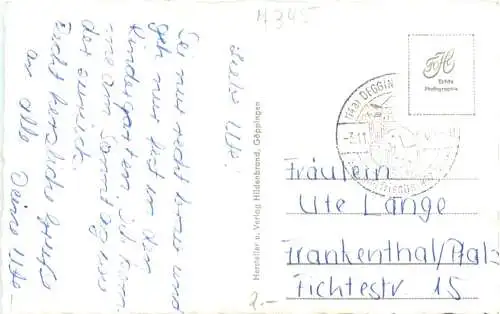 M 345
Liebe Ute.
Sei nur recht brav und
geh nur fest in den
Kindergarten. Ich kom-
me am Sonntag wie-
der zurück.
Recht herzliche Grüße
an alle Deine Uta
Hersteller u. Verlag Hildenbrand, Göppingen
2.-
H
Echte
Photographie
DEGGIN
Fräulein
Ute Lange
Frankenthal/Pfalz
Fichtestr 15